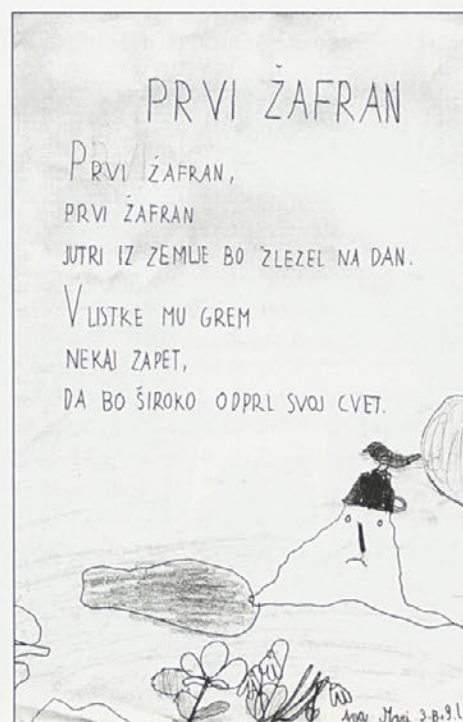 PRVI ŽAFRAN
PRVI ŽAFRAN,
PRVI ŽAFRAN
JUTRI IZ ZEMLJE BO ZLEZEL NA DAN.
V LISTKE MU GREM
NEKAJ ZAPET,
DA BO ŠIROKO ODPRL SVOJ CVET.
3.B. 9 l